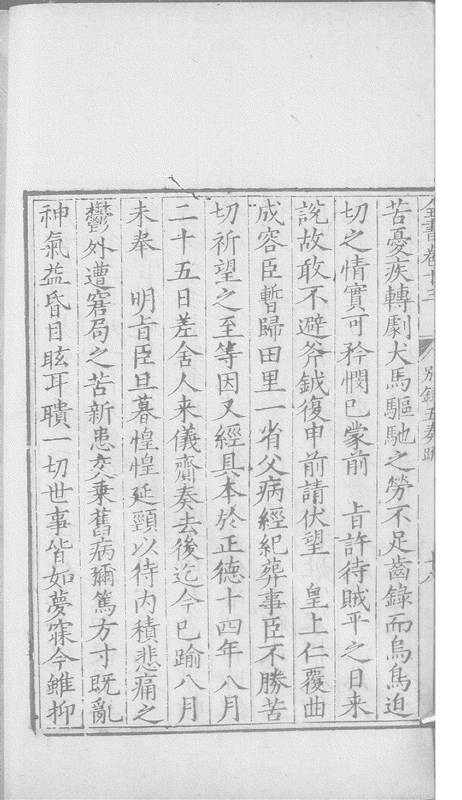 苦憂疾轉劇犬馬驅馳之勞不足齒錄而烏鳥迫
切之情實可矜憫已蒙前　旨許待賊平之日来
說故敢不避斧鉞復申前請伏望　皇上仁覆曲
成容臣暫歸田里一省父病經紀葬事臣不勝苦
切祈望之至等因又經具本於正德十四年八月
二十五日差舍人来儀齎奏去後迄今已踰八月
未奉　明旨臣旦暮惶惶延頸以待内積悲痛之
鬱外遭窘局之苦新患交乗舊病彌篤方寸既亂
神氣益昏目眩耳聵一切世事皆如夢寐今雖抑